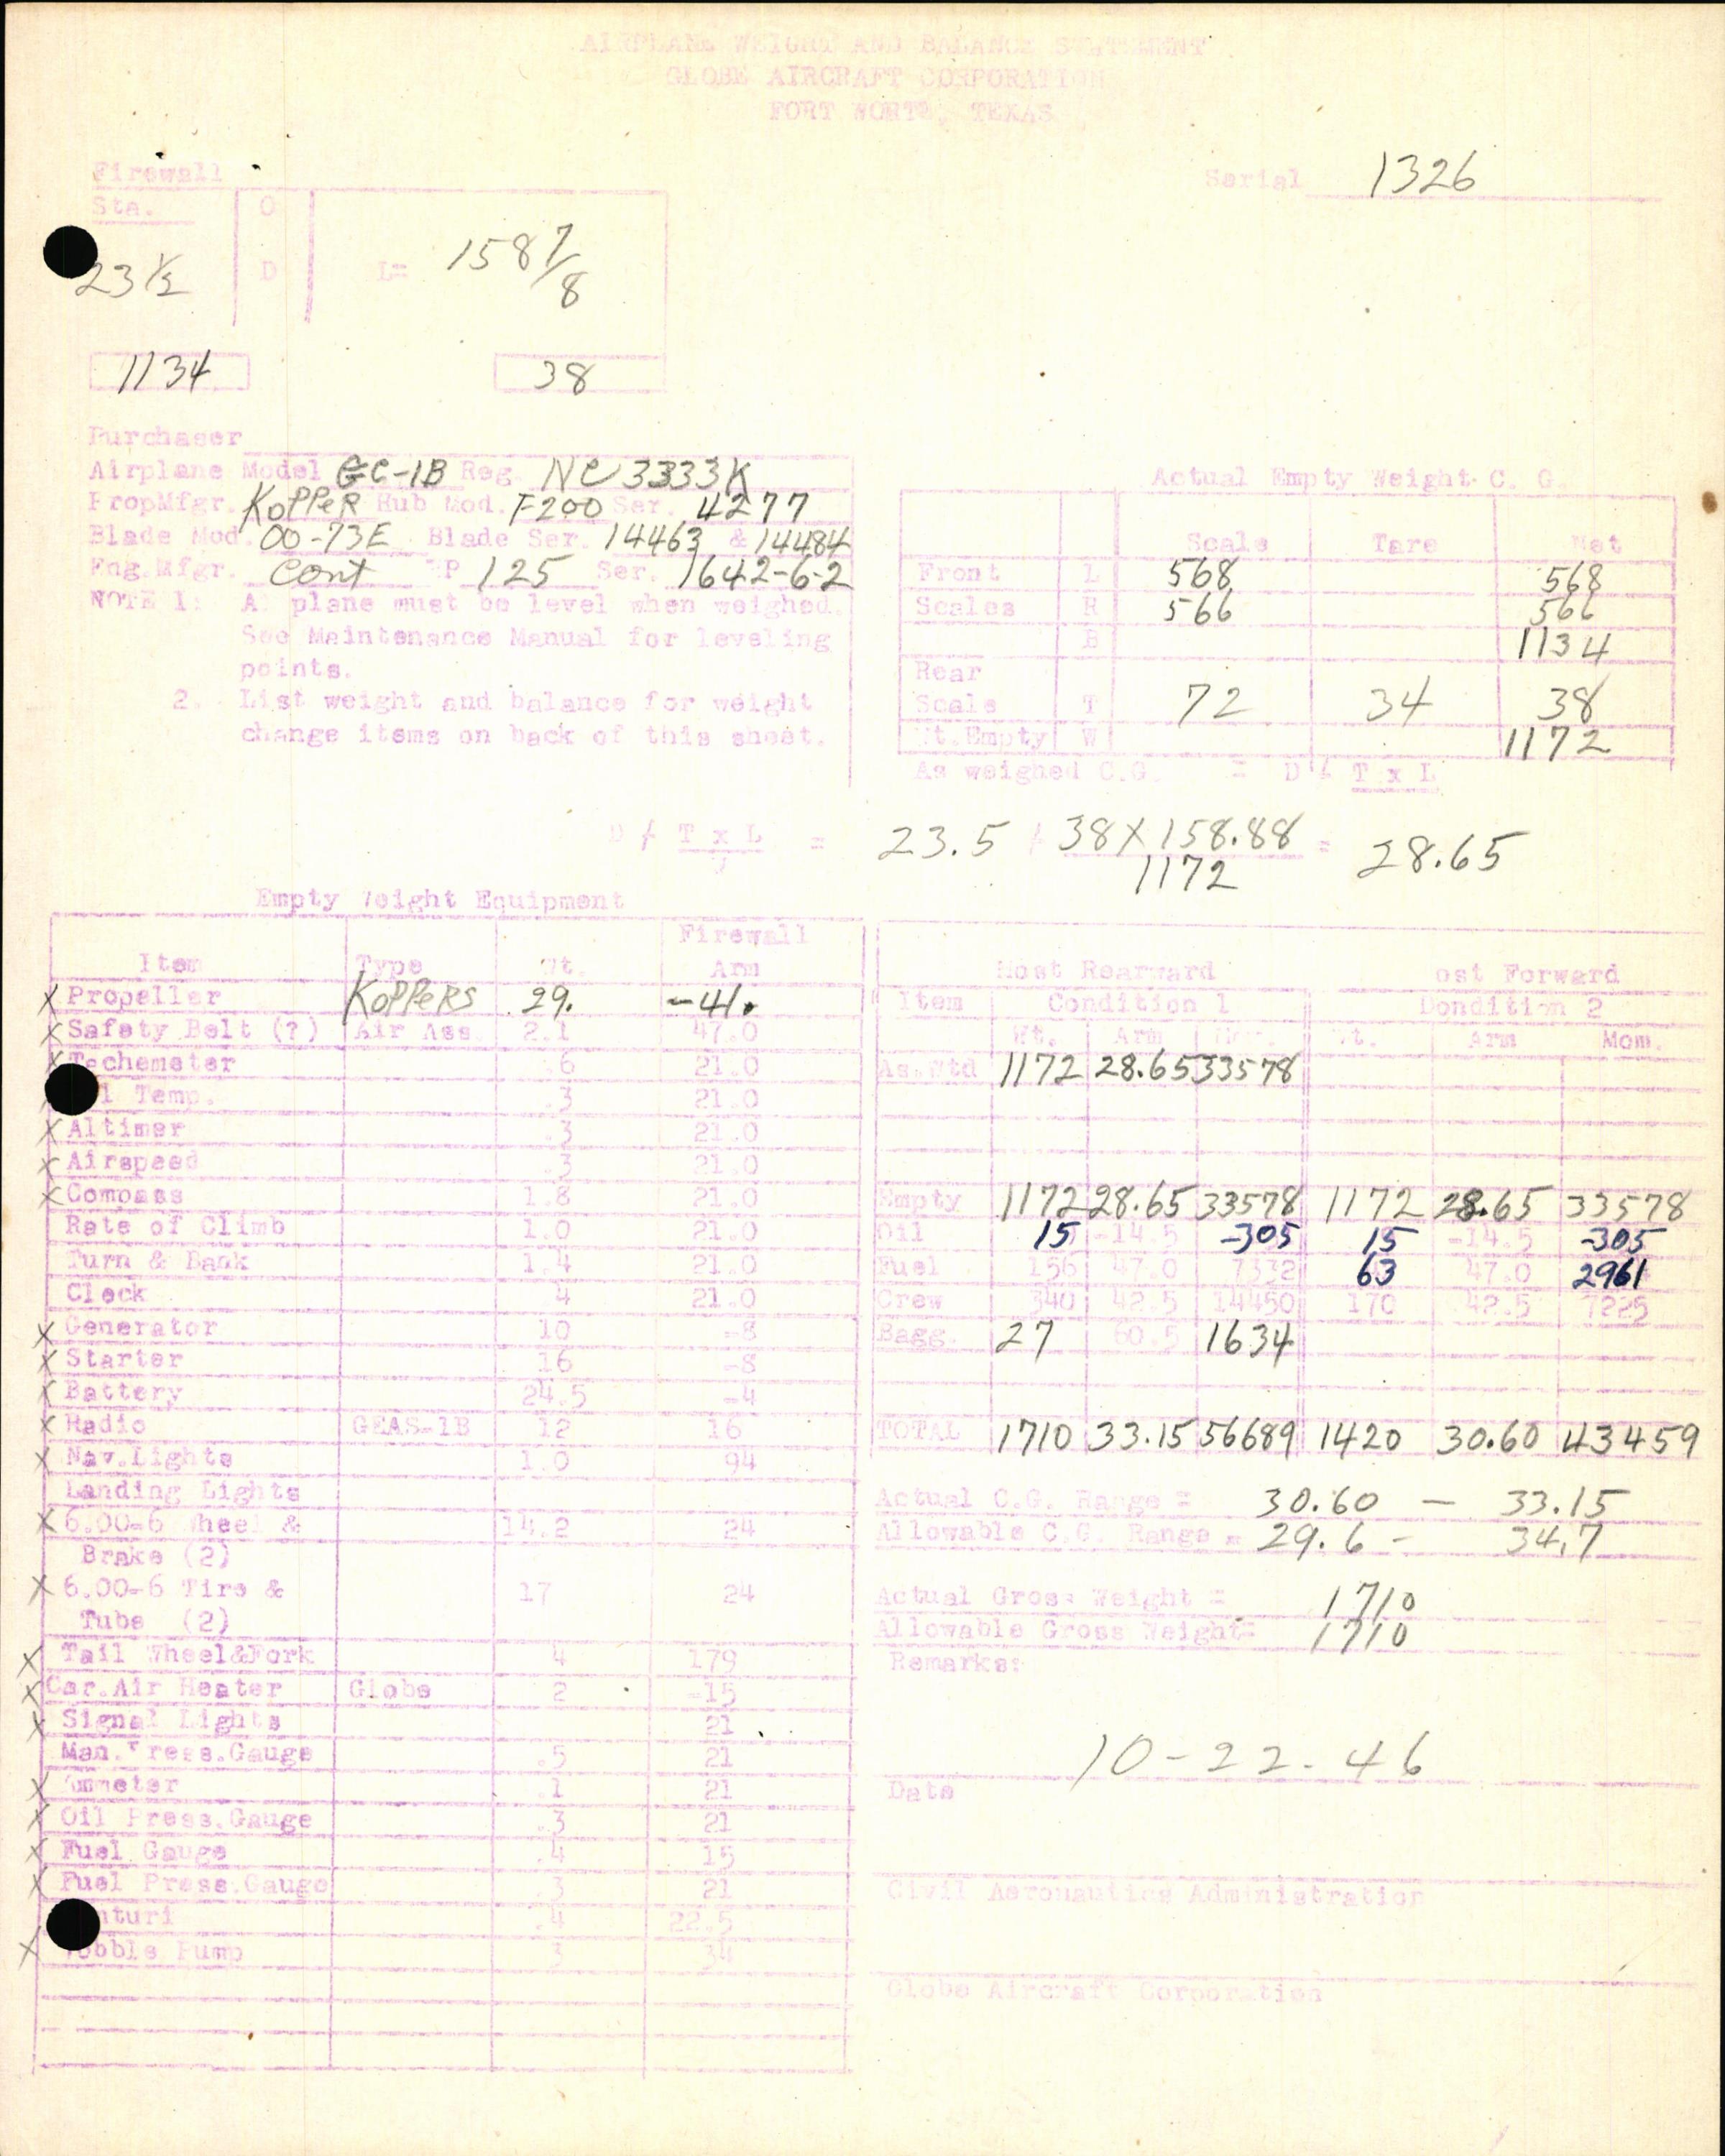 AIRPLANE WEIGHT AND BALANCE STATEMENT
GLOBE AIRCRAFT CORPORATION
FORT WORTH, TEXAS
Firewall
Serial 1326
Sta. O
23 1/2 D L= 158 7/8
1134 38
Purchaser
Airplane Model GC-1B Reg. NC3333K
PropMfgr. KOPPER Hub Mod. F200 Ser. 4277
Blade Mod. 00-73E Blade Ser. 14463 & 14484
Eng.Mfgr. Cont HP 125 Ser. 1642-6-2
NOTE 1: A plane must be level when weighed.
See Maintenance Manual for leveling
points.
2. List weight and balance for weight
change items on back of this sheet.
Actual Empty Weight C. G.
Scale Tare Net
Front L 568 568
Scales R 566 566
B 1134
Rear
Scale T 72 34 38
Wt.Empty W 1172
As weighed C.G. = D / T x L
D / T x L = 23.5 / 38 X 158.88 = 28.65
W 1172
Empty Weight Equipment
Firewall
Item Type Wt. Arm
X Propeller KOPPERS 29. -41.
X Safety Belt (?) Air Ass. 2.1 47.0
X Techometer .6 21.0
l Temp. .3 21.0
X Altimer .3 21.0
X Airspeed .3 21.0
X Compass 1.8 21.0
Rate of Climb 1.0 21.0
Turn & Bank 1.4 21.0
Clock 4 21.0
X Generator 10 -8
X Starter 16 -8
X Battery 24.5 -4
X Radio GEAS-1B 12 16
X Nav.Lights 1.0 94
Landing Lights
X 6.00-6 Wheel & 14.2 24
Brake (2)
X 6.00-6 Tire & 17 24
Tube (2)
X Tail Wheel&Fork 4 179
X Car.Air Heater Globe 2 -15
X Signal Lights 21
Man.Press.Gauge .5 21
X Ammeter .1 21
X Oil Press.Gauge .3 21
X Fuel Gauge .4 15
X Fuel Press.Gauge .3 21
nturi .4 22.5
X obble Pump 3 34
Most Rearward ost Forward
Item Condition 1 Dondition 2
Wt. Arm Mom. Wt. Arm Mom.
As.Wtd 1172 28.65 33578
Empty 1172 28.65 33578 1172 28.65 33578
Oil 15 -14.5 -305 15 -14.5 -305
Fuel 156 47.0 7332 63 47.0 2961
Crew 340 42.5 14450 170 42.5 7225
Bagg. 27 60.5 1634
TOTAL 1710 33.15 56689 1420 30.60 43459
Actual C.G. Range = 30.60 — 33.15
Allowable C.G. Range = 29.6 - 34.7
Actual Gross Weight = 1710
Allowable Gross Weight= 1710
Remarks:
10-22-46
Date
Civil Aeronautics Administration
Globe Aircraft Corporation